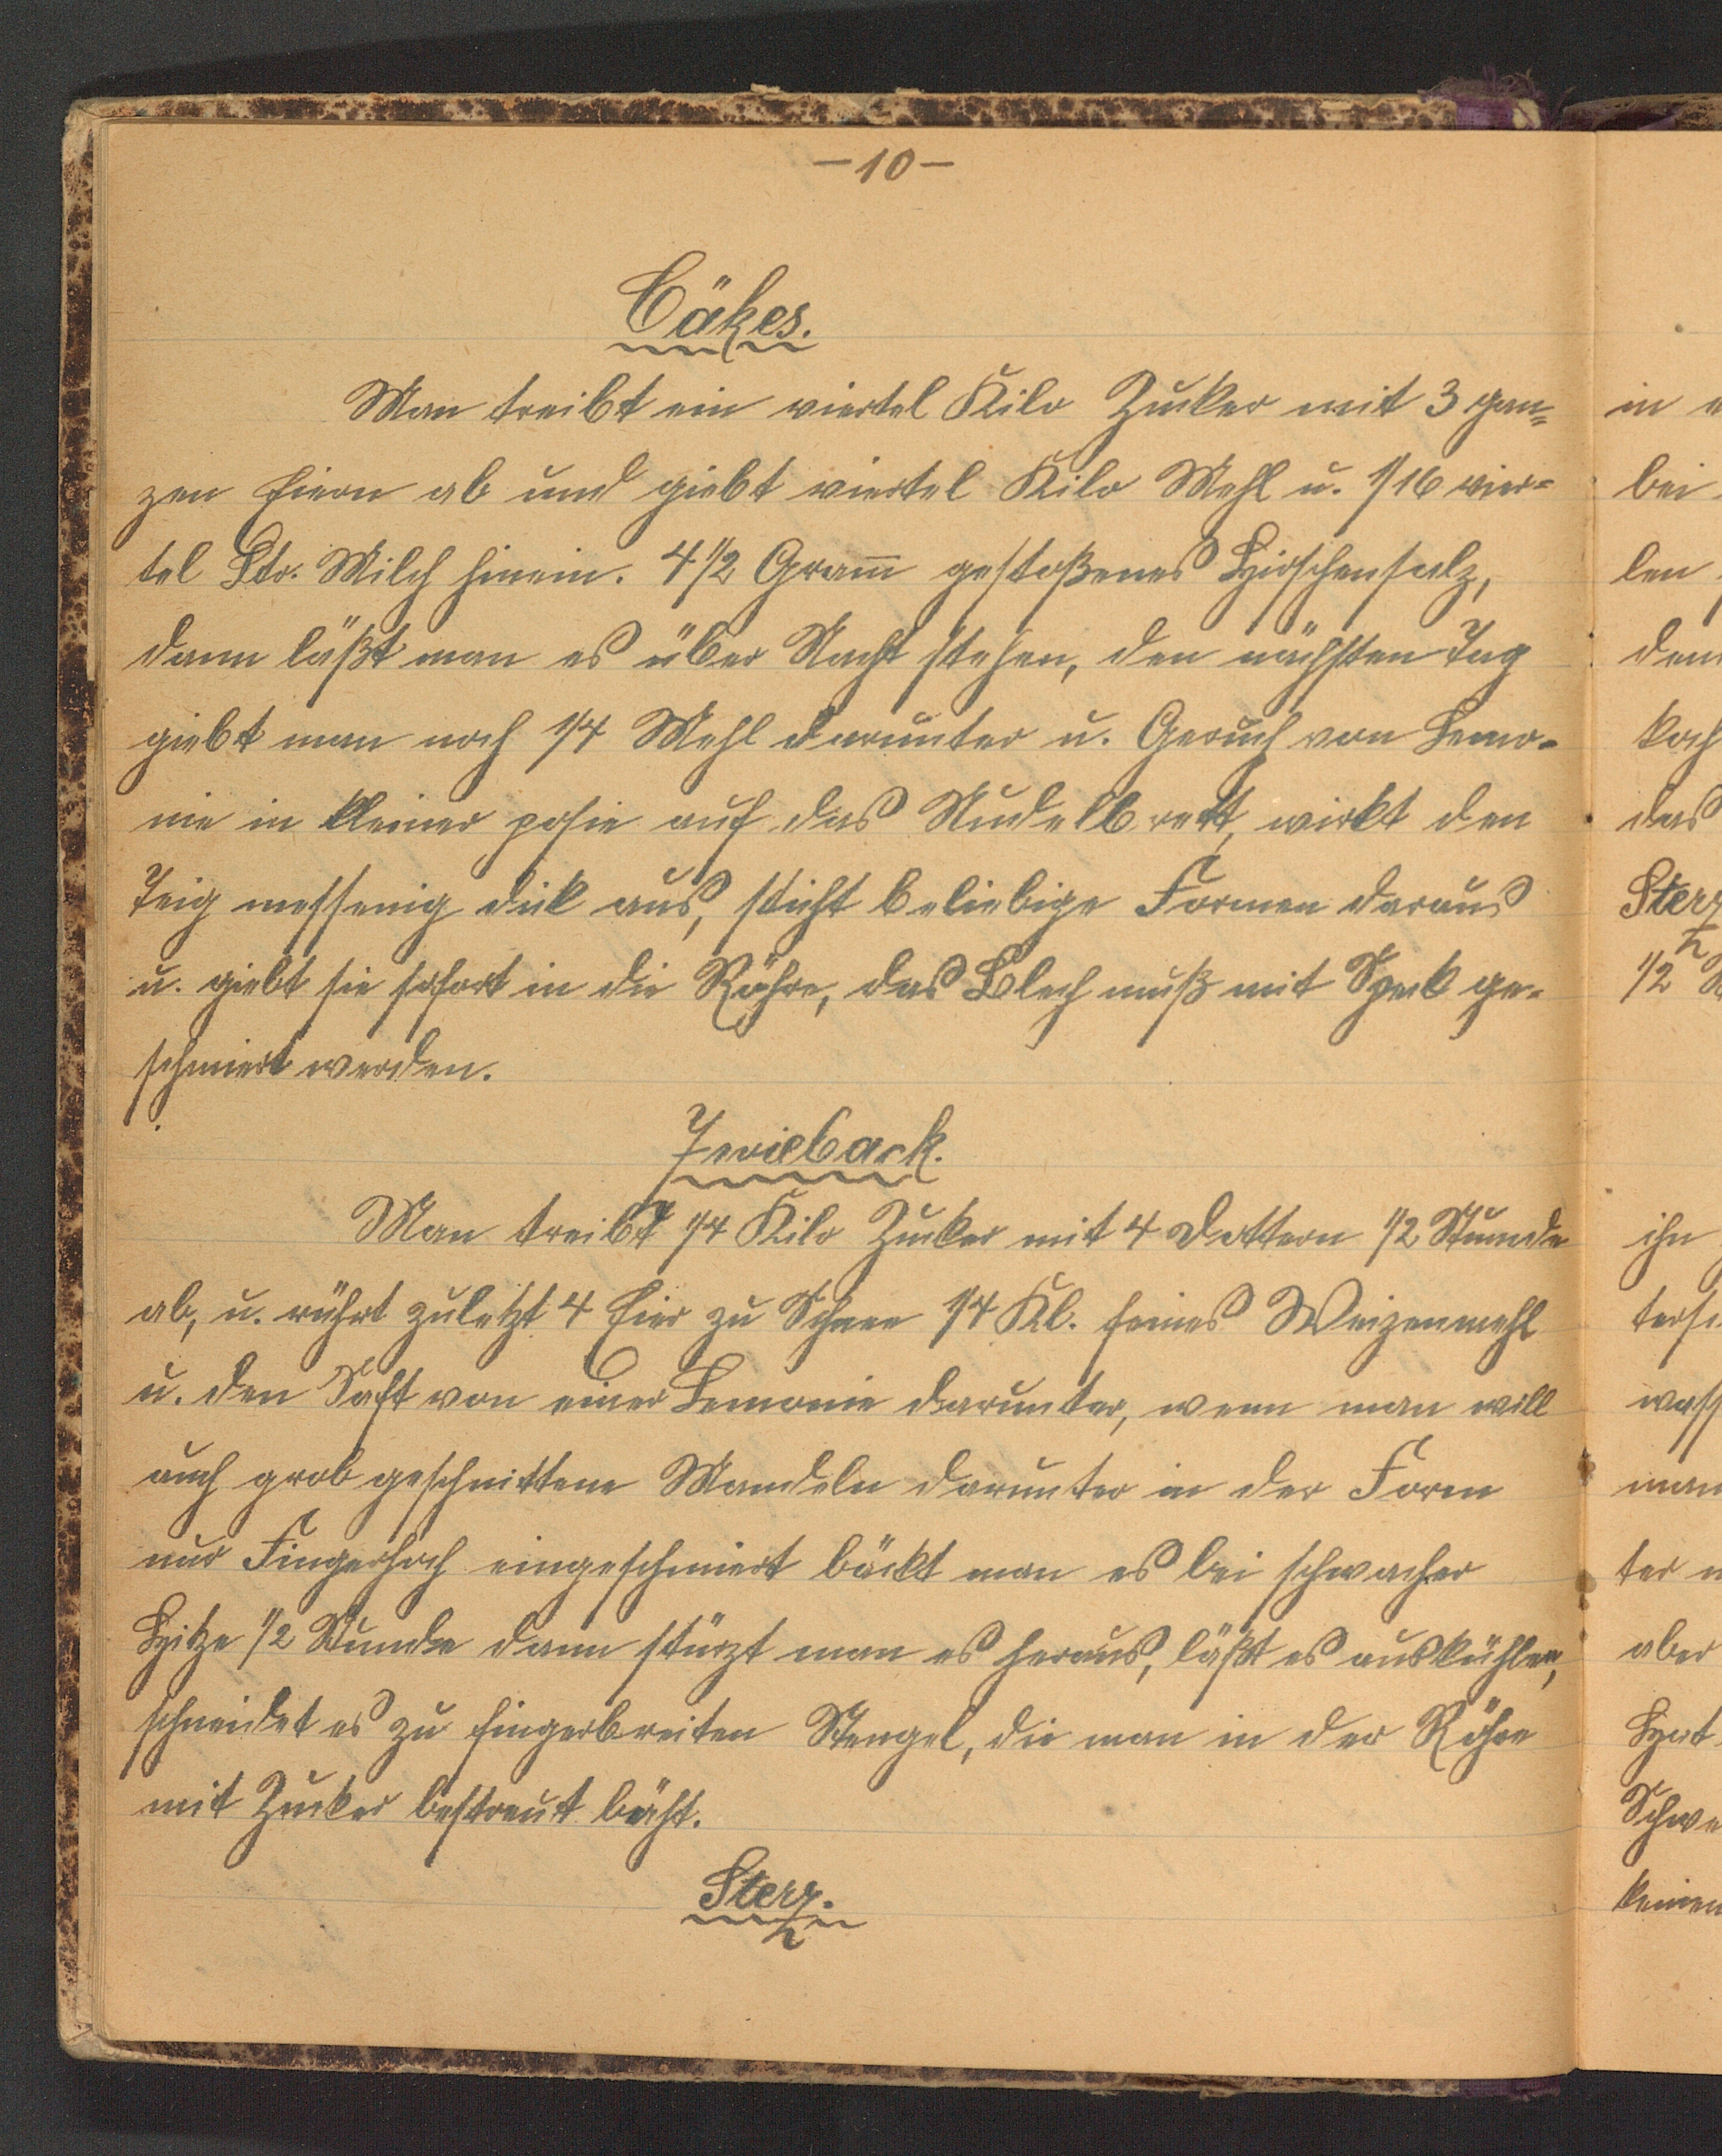 -10-
Cäkes.
Man treibt ein viertel Kilo Zucker mit 3 gan=
zen Eiern ab und giebt viertel Kilo Mehl u. 1/16 vier=
tel Ltr. Milch hinein. 4 1/2 Gram̅ gestoßenes Hirschensalz,
dann läßt man es über Nacht stehen, den nächsten Tag
giebt man noch 1/4 Mehl darunter u. Geruch von Lemo-
nie in kleiner posie auf das Nudelbrett, wirkt den
Teig messerig dick aus, sticht beliebige Formen daraus
u. giebt sie sofort in die Röhre, das Blech muß mit Speck ge-
schmiert werden.
Zwieback.
Man treibt 1/4 Kilo Zucker mit 4 Dottern 1/2 Stunde
ab, u. rührt zuletzt 4 Eier zu Schnee 1/4 Kl. feines Weizenmehl
u. den Saft von einer Lemonie darunter, wenn man will
auch grob geschnittene Mandeln darunter in der Form
nur Fingerhoch eingeschmiert bäckt man es bei schwacher
Hitze 1/2 Stunde dann stürzt man es heraus, läßt es auskühlen,
schneidet es zu fingerbreiten Stengel, die man in der Röhre
mit Zucker bestreut bäht.
Sterz.
in
bei
len
koch
das
Sterz
1/2
ihn
ter
aber
Schwe
keinen